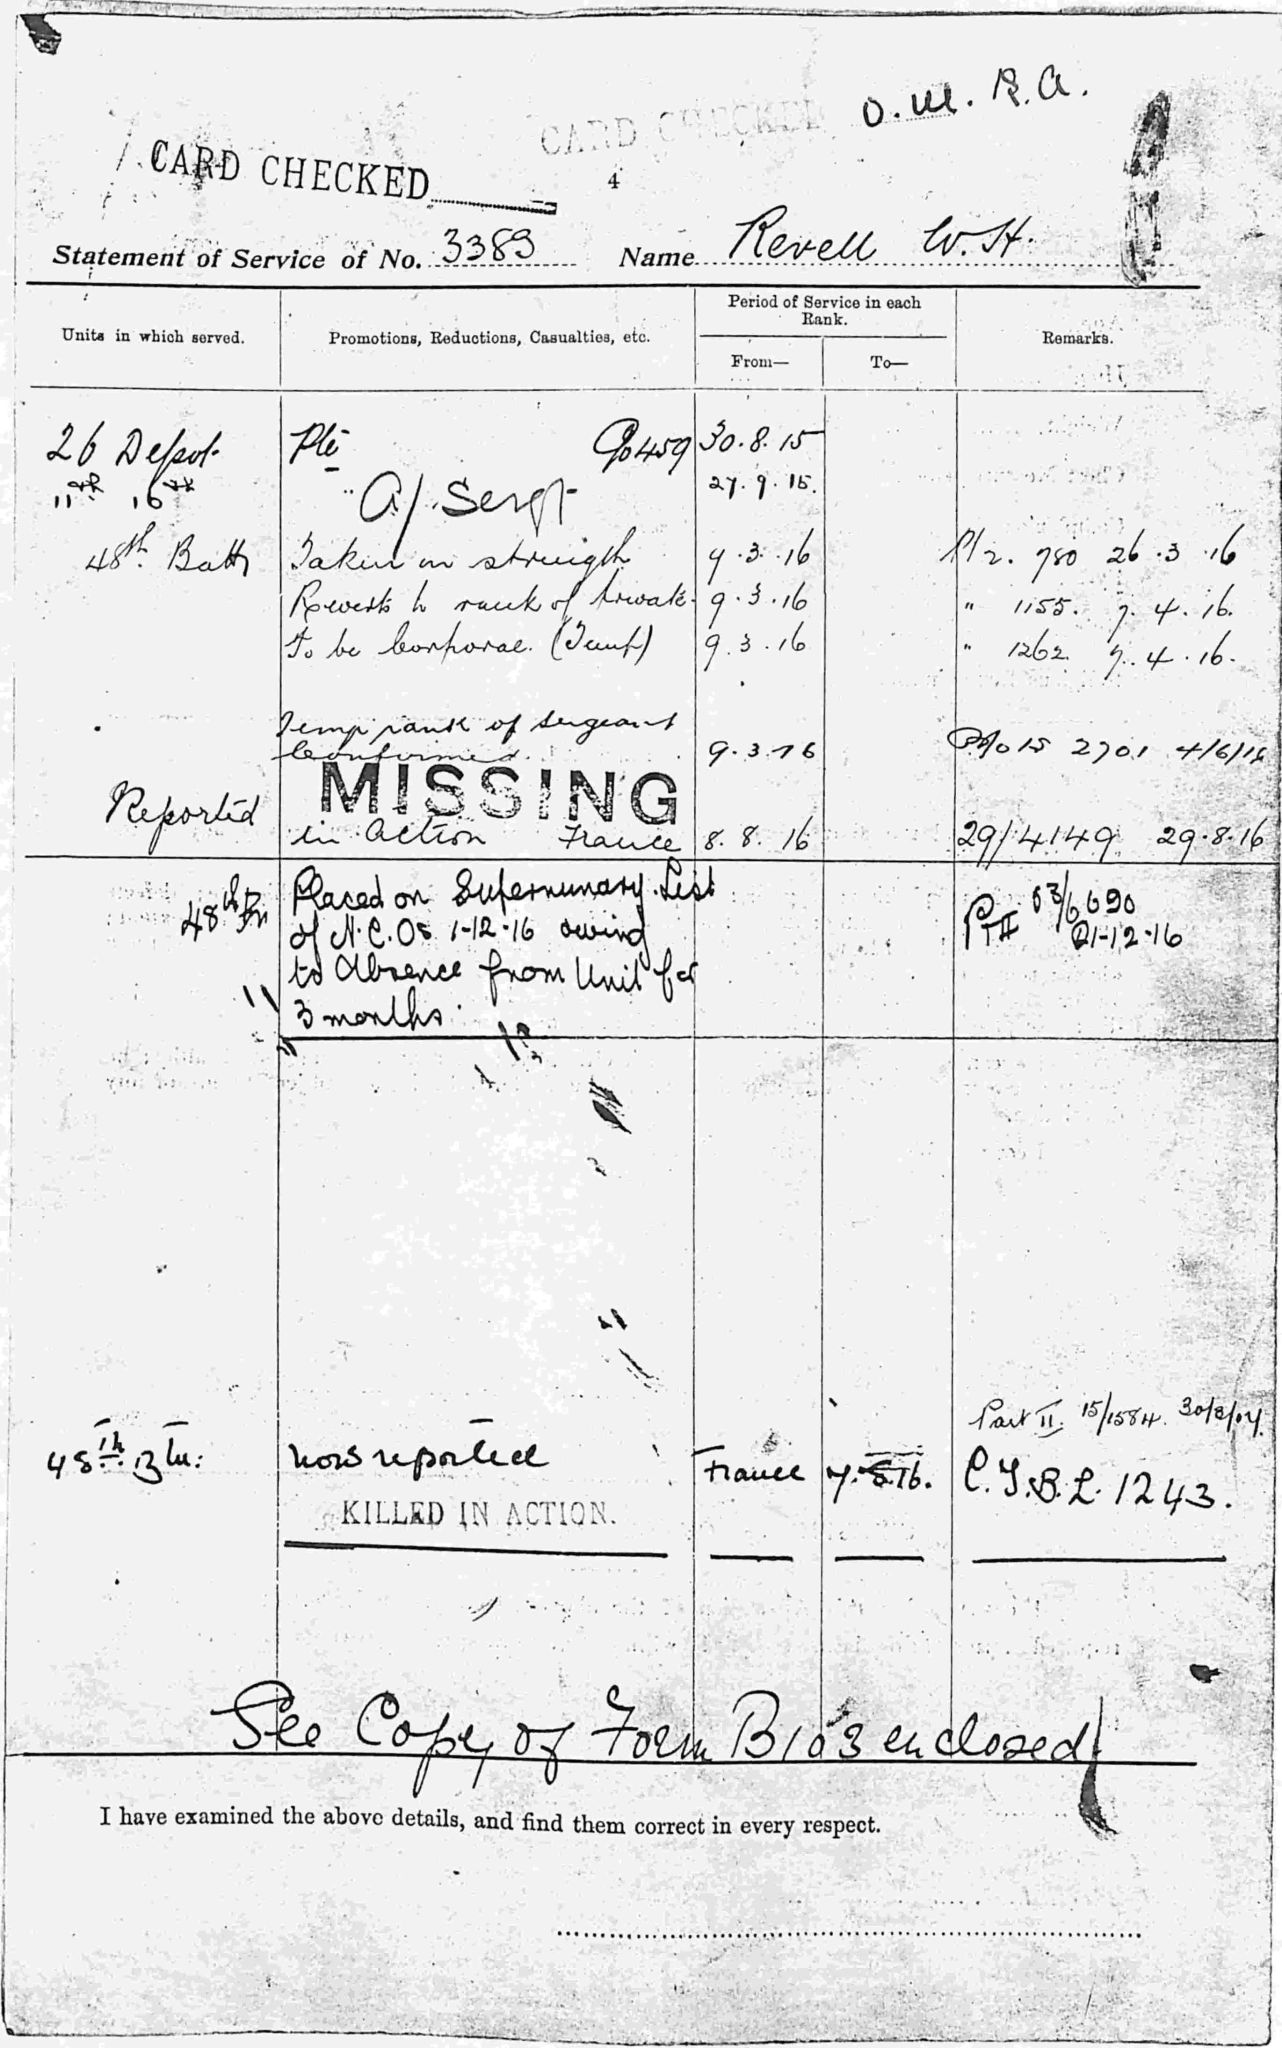 O. M. R. A.
CARD CHECKED
CARD CHECKED
4
Statement of Service of No. 3383 Name Revell W. H.
Units in which served. Promotions, Reductions, Casualties, etc. Period of Service in each Rank. Remarks.
From— To—
26 Depot Pte 30.8.15
11th 16th A/ Sergt 27.9.15.
48th Battn Taken on strength 9.3.16 Pt 2. 780 26.3.16
Reverts to rank of Private 9.3.16 " 1155. 7.4.16.
To be Corporal (Temp) 9.3.16 " 1262 7.4.16.
Temp rank of Sergeant
Confirmed. 9.3.16 2701 4/6/16
Reported MISSING
in Action France 8.8.16 29/4149 29.8.16
48th Bn Placed on Supernumary List
of N.C.Os 1-12-16 owing 21-12-16
to absence from Unit for
3 months.
Part II. 15/1584.
48th Bn: now reported France C.I.B.L. 1243.
KILLED IN ACTION.
See Copy of Form B103 enclosed
I have examined the above details, and find them correct in every respect.